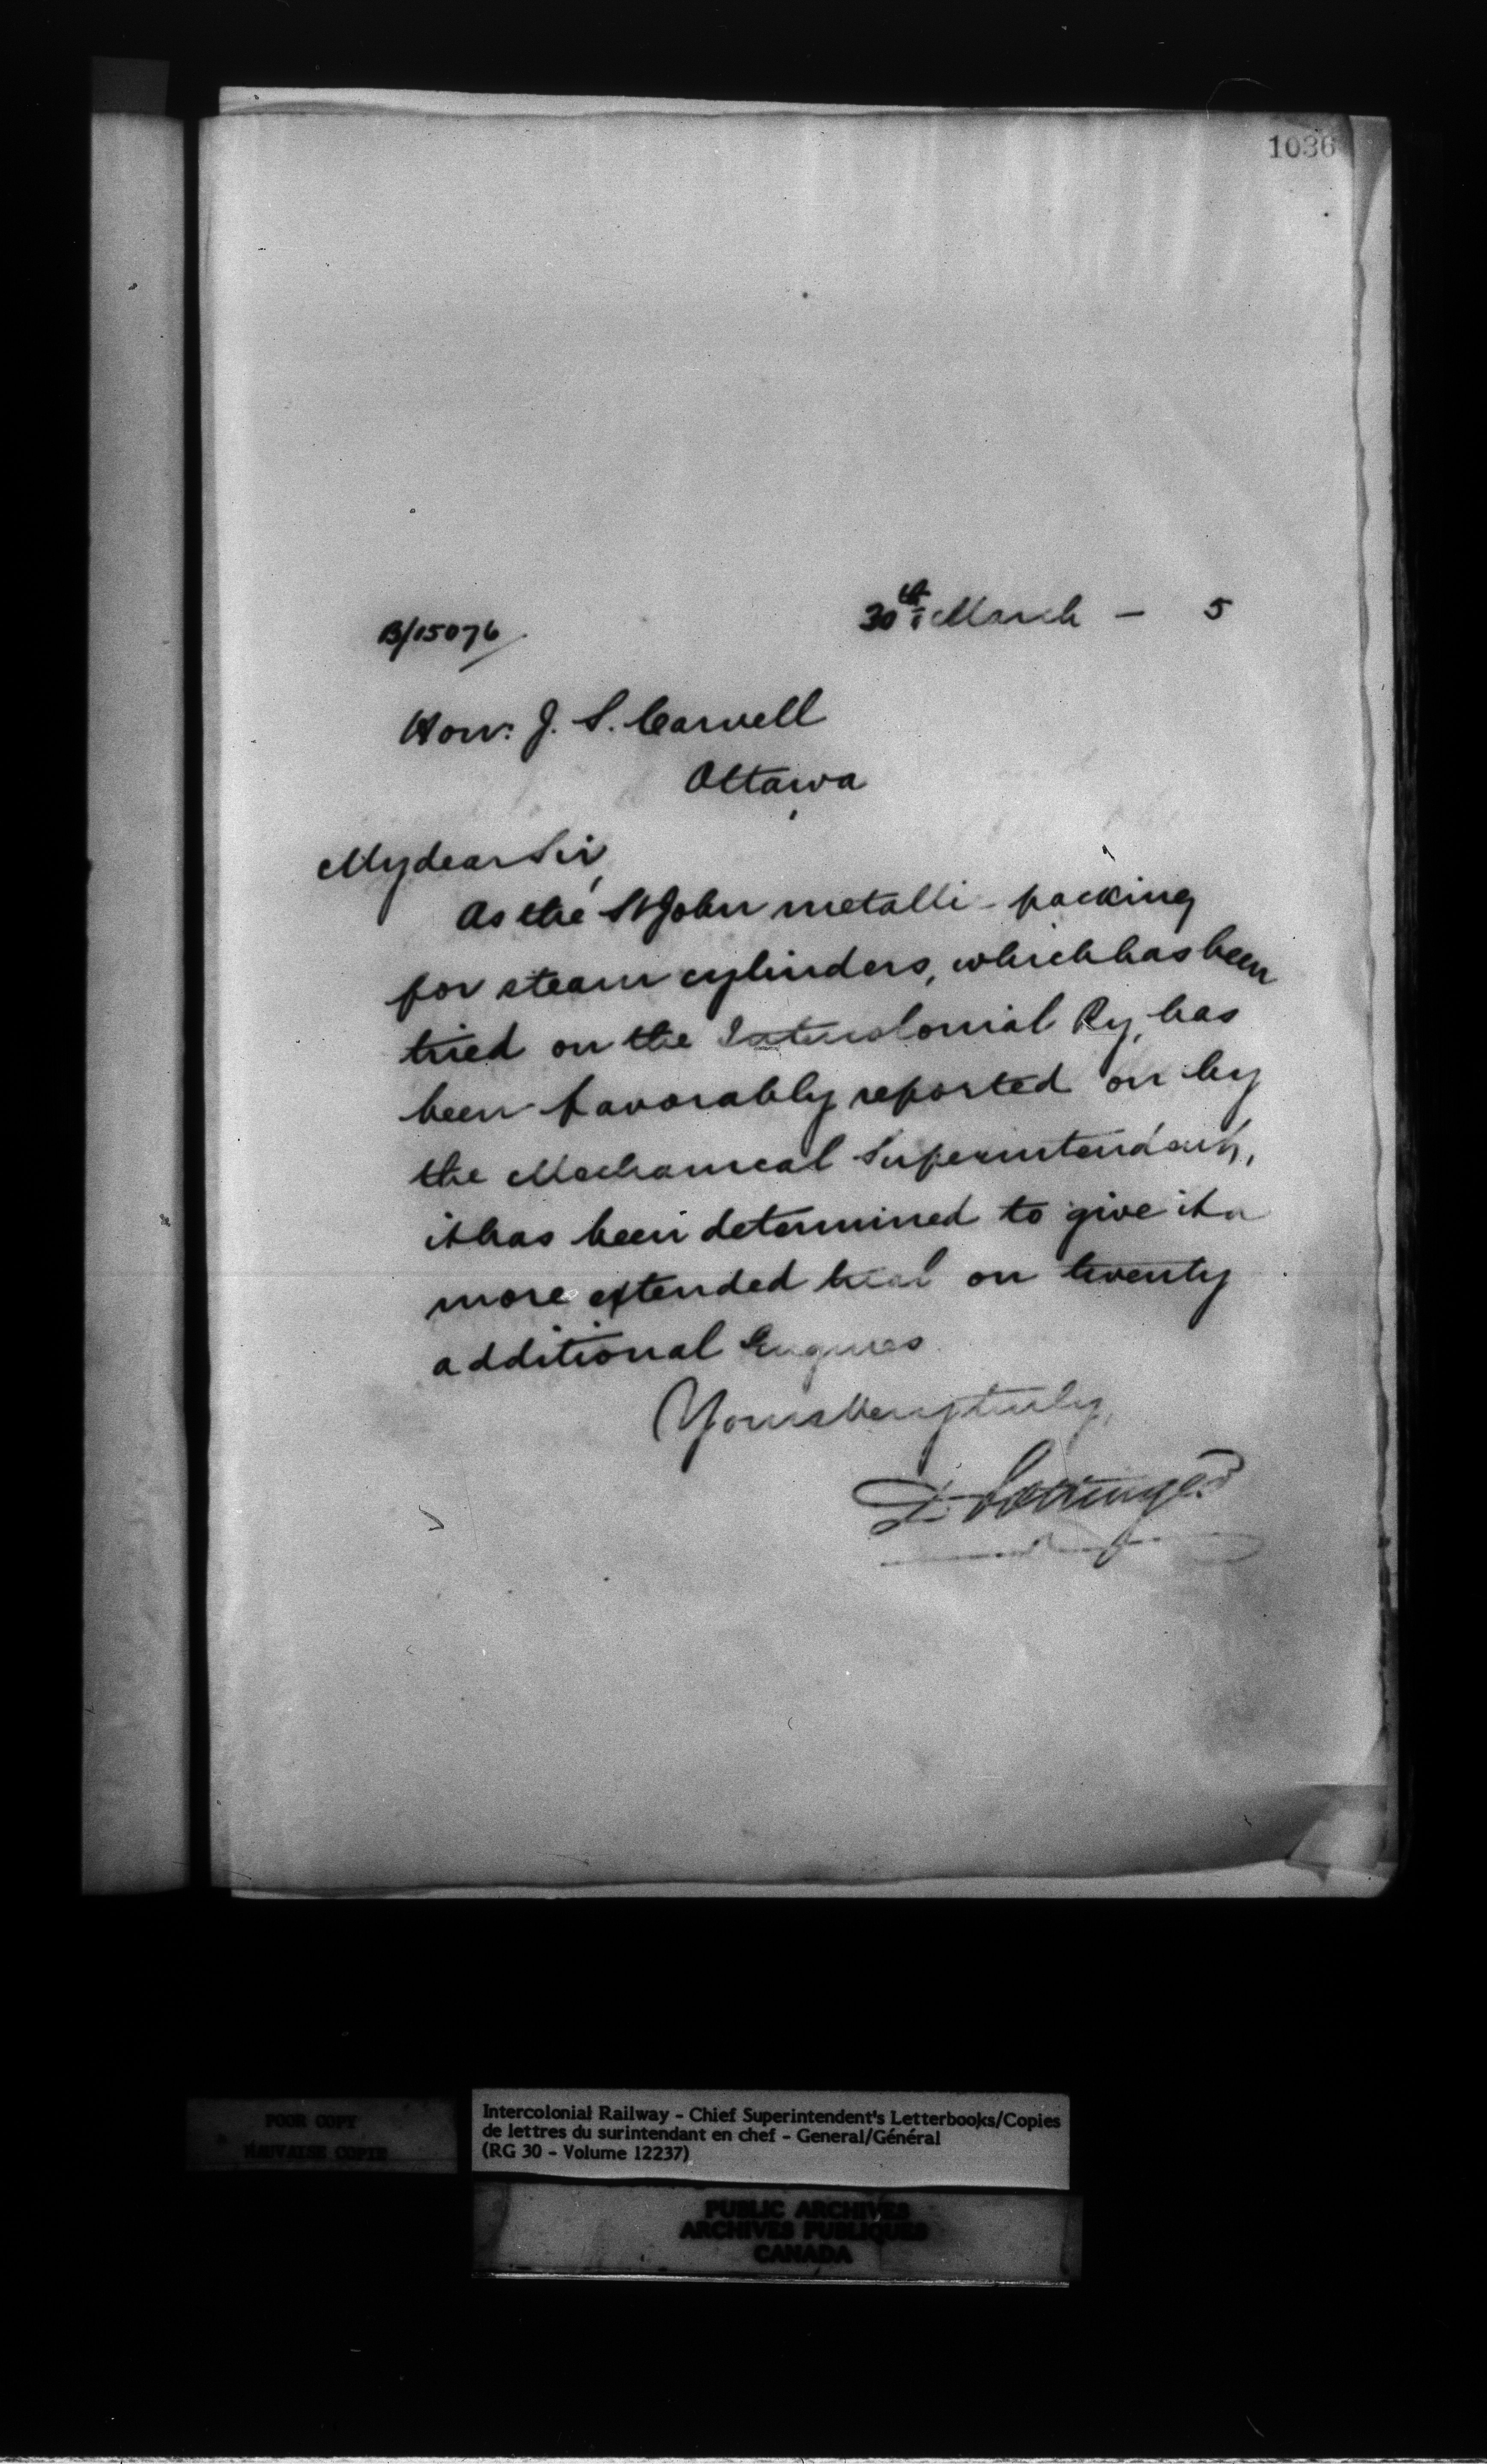 1036
30th March - 5
B/15076
Hon: J. S. Carvell
Ottawa
My dear Sir,
As the St John metalli- packing
for steam cylinders, which has been
tried on the Intercolonial Ry, has
been favorably reported on by
the Mechanical Superintendent,
it has been determined to give it a
more extended trial on twenty
additional Engines
Yours Very truly,
D. Pottinger
POOR COPY
MAUVAISE COPIE
Intercolonial Railway - Chief Superintendent's Letterbooks/Copies
de lettres du surintendant en chef - General/Général
(RG 30 - Volume 12237)
PUBLIC ARCHIVES
ARCHIVES PUBLIQUES
CANADA